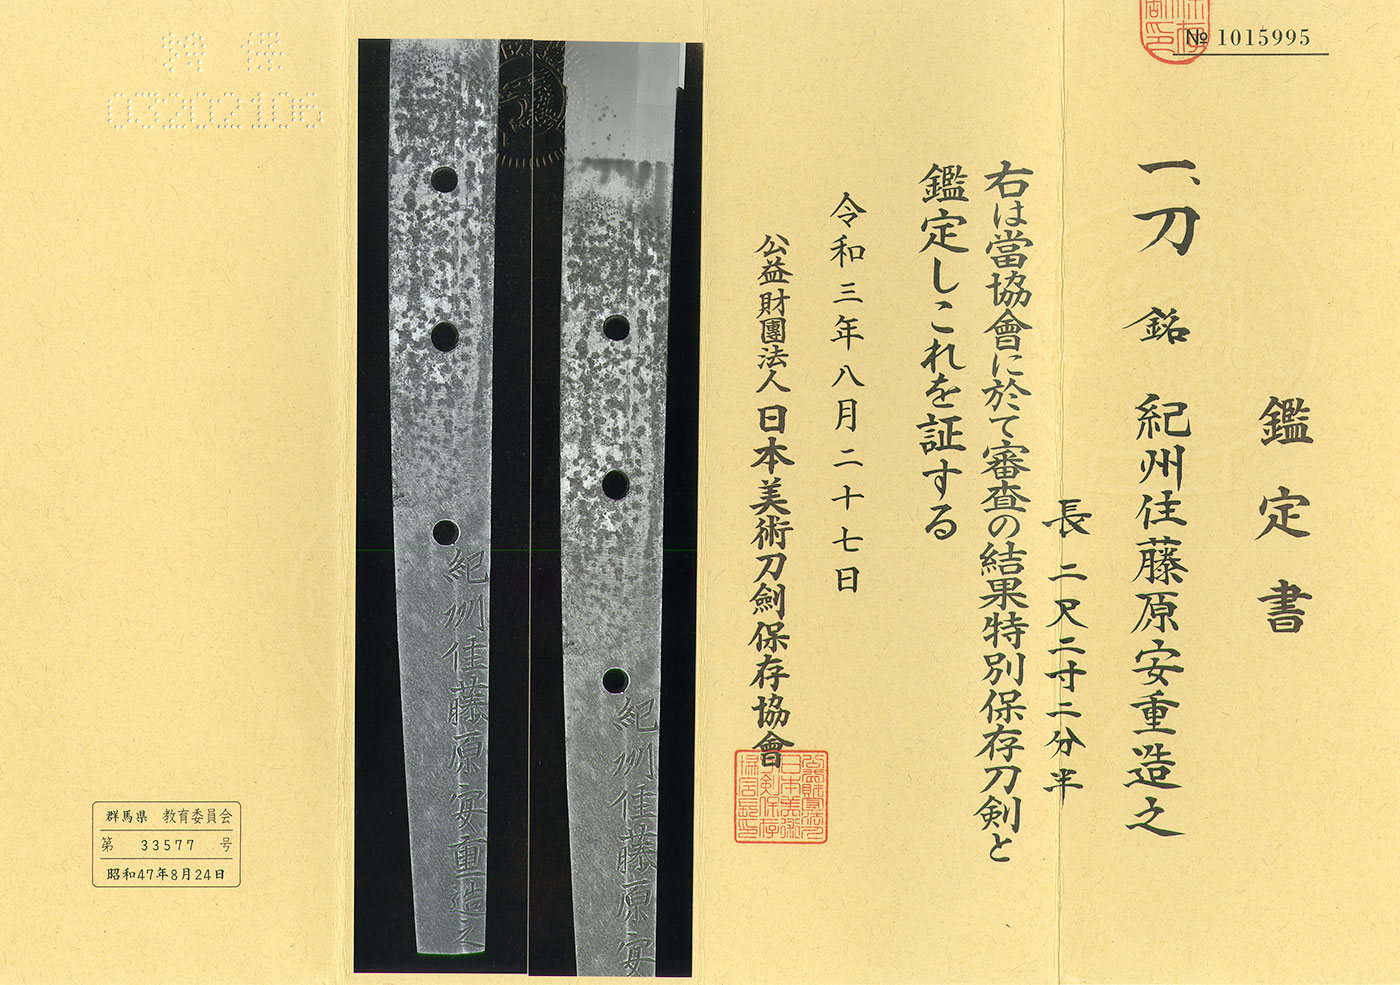 № 1015995
鑑定書
一、刀 銘 紀州住藤原安重造之
長二尺二寸二分半
右は當協會に於て審査の結果特別保存刀剣と
鑑定しこれを証する
令和三年八月二十七日
公益財團法人日本美術刀劍保存協會
紀州住藤原安
紀州住藤原安重造之
03202106
群馬県 教育委員会
第 33577 号
昭和47年8月24日